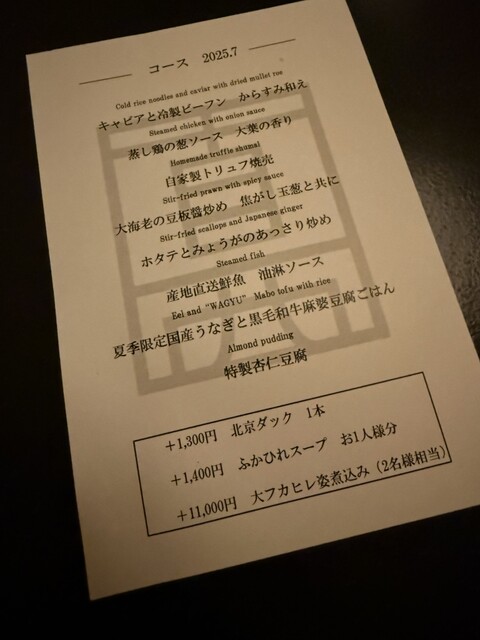 コース 2025.7
Cold rice noodles and caviar with dried mullet roe
キャビアと冷製ビーフン からすみ和え
Steamed chicken with onion sauce
蒸し鶏の葱ソース 大葉の香り
Homemade truffle shumai
自家製トリュフ焼売
Stir-fried prawn with spicy sauce
大海老の豆板醤炒め 焦がし玉葱と共に
Stir-fried scallops and Japanese ginger
ホタテとみょうがのあっさり炒め
Steamed fish
産地直送鮮魚 油淋ソース
Eel and "WAGYU" Mabo tofu with rice
夏季限定国産うなぎと黒毛和牛麻婆豆腐ごはん
Almond pudding
特製杏仁豆腐
+1,300円 北京ダック 1本
+1,400円 ふかひれスープ お1人様分
+11,000円 大フカヒレ姿煮込み（2名様相当）